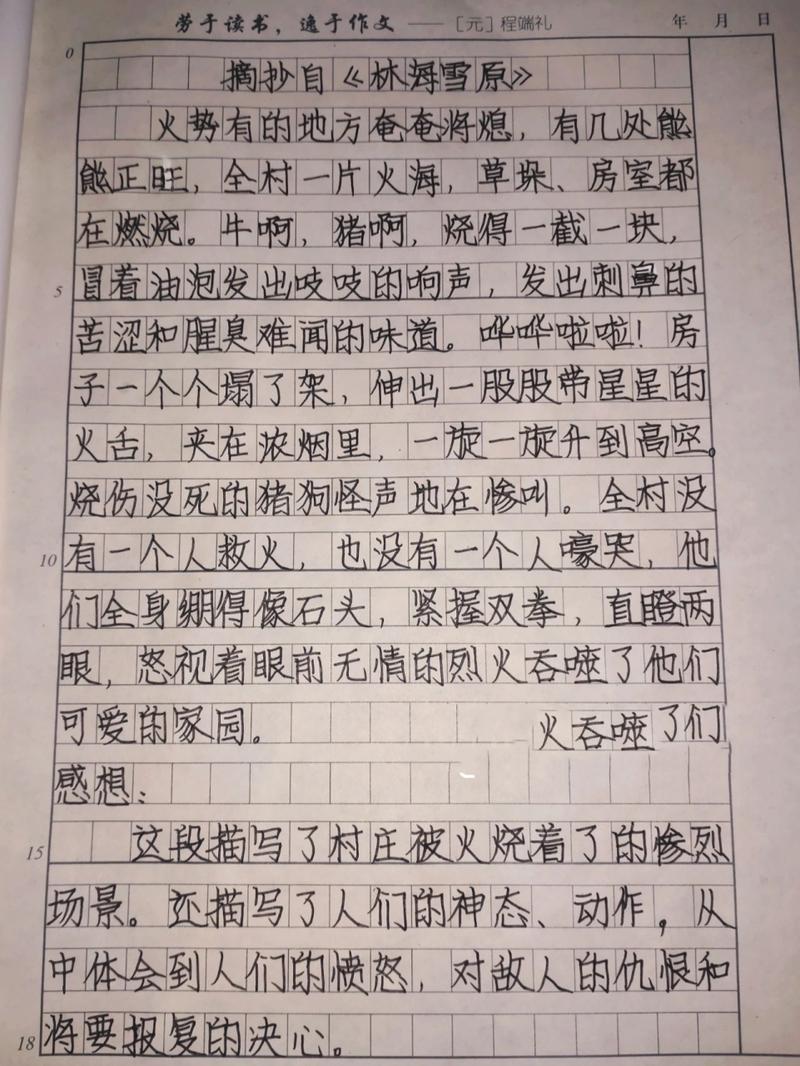 劳于读书，逸于作文 —— [元]程端礼 年 月 日
0
摘抄自《林海雪原》
火势有的地方奄奄将熄，有几处熊
熊正旺，全村一片火海，草垛、房室都
在燃烧。牛啊，猪啊，烧得一截一块，
5 冒着油泡发出吱吱的响声，发出刺鼻的
苦涩和腥臭难闻的味道。哗哗啦啦！房
子一个个塌了架，伸出一股股带星星的
火舌，夹在浓烟里，一旋一旋升到高空。
烧伤没死的猪狗怪声地在惨叫。全村没
10 有一个人救火，也没有一个人嚎哭，他
们全身绷得像石头，紧握双拳，直瞪两
眼，怒视着眼前无情的烈火吞噬了他们
可爱的家园。 火吞噬了们
感想：
15 这段描写了村庄被火烧着了的惨烈
场景。还描写了人们的神态、动作，从
中体会到人们的愤怒，对敌人的仇恨和
18 将要报复的决心。